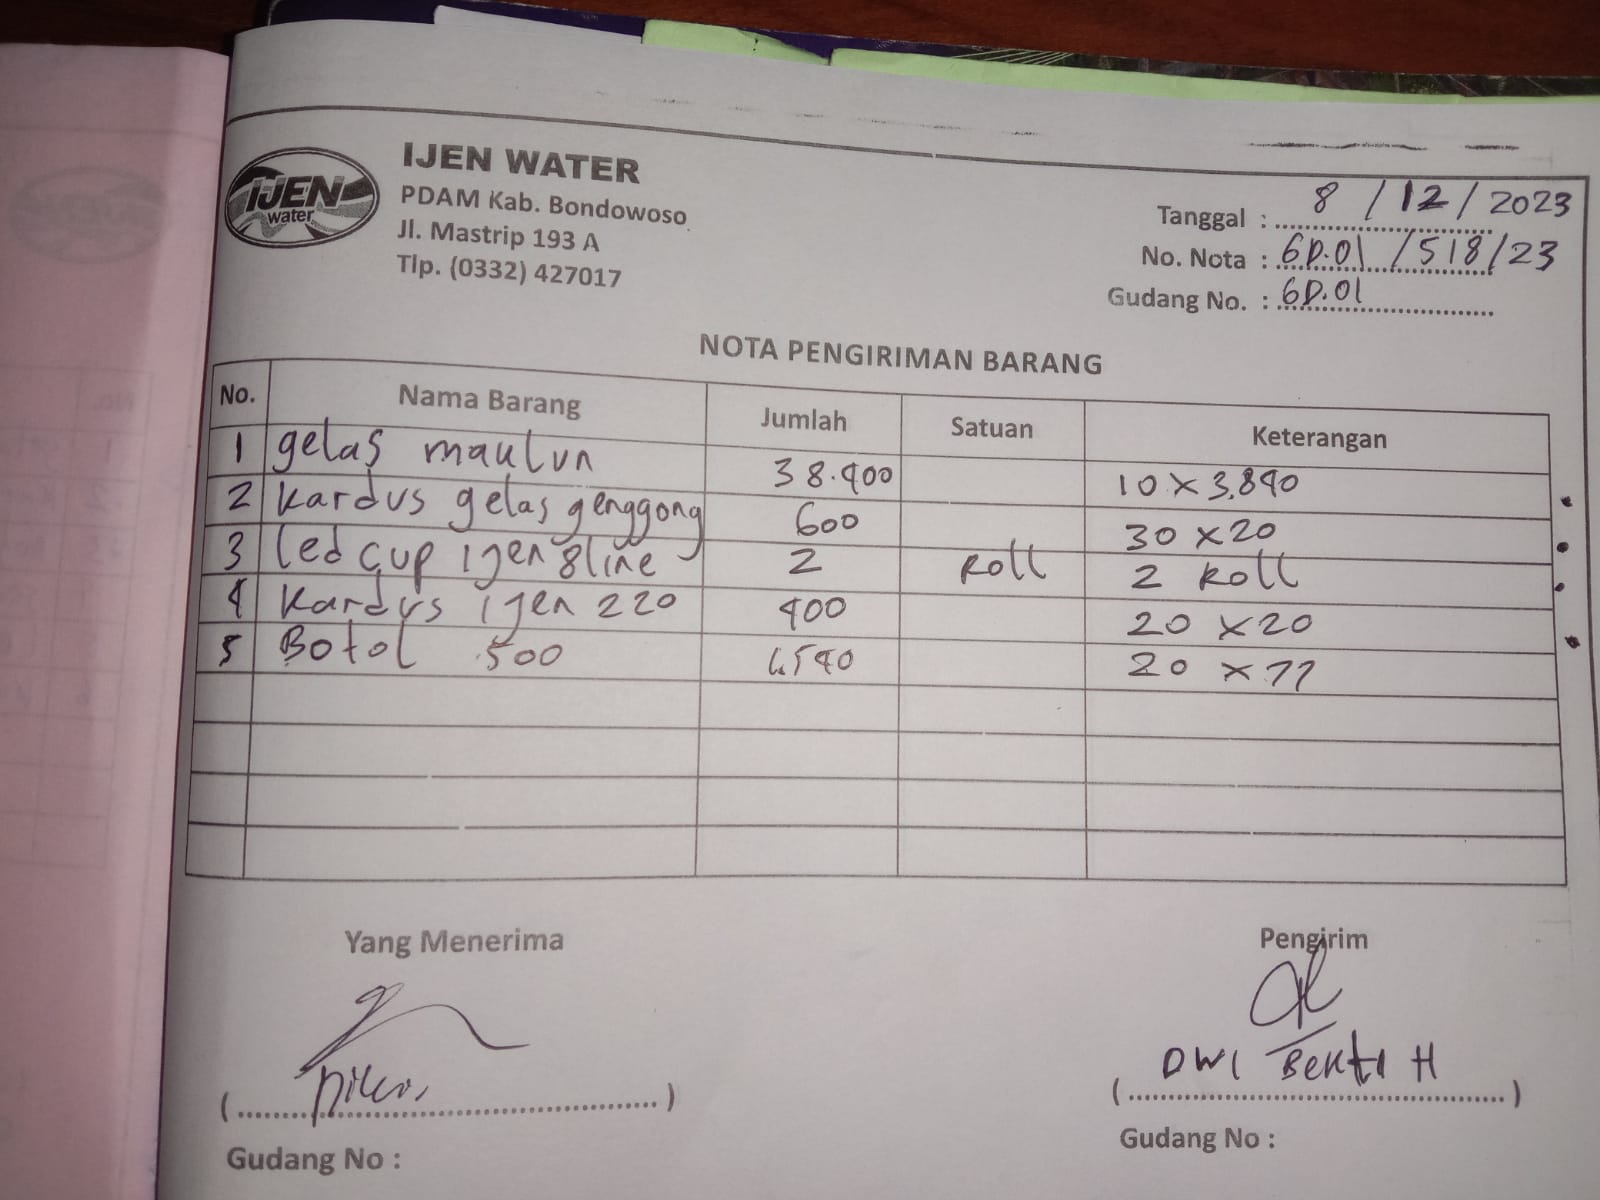 IJEN
water
IJEN WATER
PDAM Kab. Bondowoso
Jl. Mastrip 193 A
Tlp. (0332) 427017
Tanggal : 8 / 12 / 2023
No. Nota : GD.01 / 518 / 23
Gudang No. : GD.01
NOTA PENGIRIMAN BARANG
No. Nama Barang Jumlah Satuan Keterangan
1 gelas maulun 38.400 10 x 3.840
2 kardus gelas genggong 600 30 x 20
3 led cup ijen 8line 2 Roll 2 Roll
4 kardus ijen 220 400 20 x 20
5 Botol 500 1.540 20 x 77
Yang Menerima Pengirim
DWI Bekti H
( ) ( )
Gudang No : Gudang No :